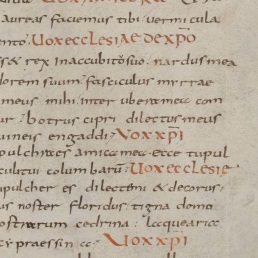 aureas faciemus tibi vermicula
ento. Vox ecclesiae de xpo
est rex in accubito suo nardus mea
dorem suum. fasciculus myrrae
meus mihi inter ubera mea com
ur. botrus cipri dilectus meus
uineis engaddi. Vox xpi
pulchra es amica mea ecce tu pul
culi tui columbarum. Vox ecclesie
u pulcher es dilecte mi & decorus
us noster floridus tigna domo
ostrarum cedrina. laquearia
cypraessina. Vox xpi